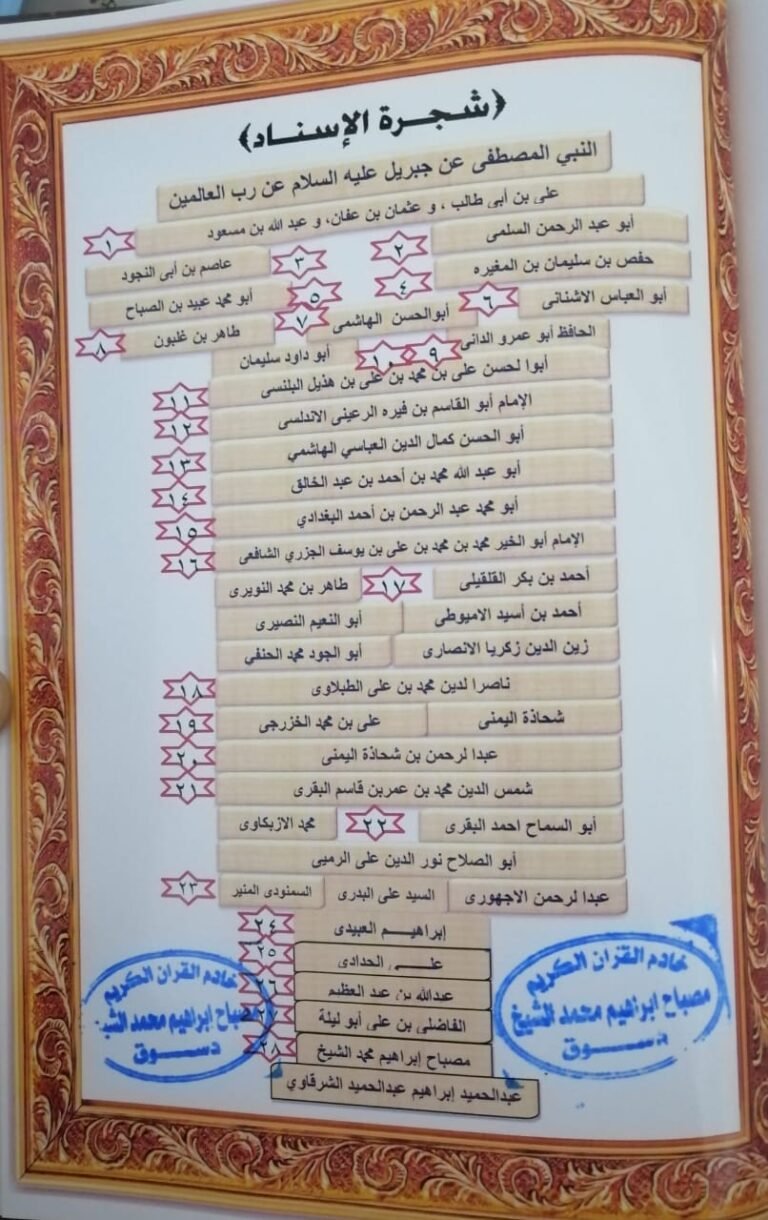 ﴿شجرة الإسناد﴾
النبي المصطفى عن جبريل عليه السلام عن رب العالمين
على بن أبى طالب ، و عثمان بن عفان، و عبد الله بن مسعود ١
أبو عبد الرحمن السلمى ٢
عاصم بن أبى النجود ٣
حفص بن سليمان بن المغيره ٤
أبو محمد عبيد بن الصباح ٥
أبو العباس الاشنانى ٦
أبوالحسن الهاشمى ٧
طاهر بن غلبون ٨
الحافظ أبو عمرو الدانى ٩
أبو داود سليمان ١٠
أبوا لحسن على بن محمد بن على بن هذيل البلنسى ١١
الإمام أبو القاسم بن فيره الرعينى الاندلسى ١٢
أبو الحسن كمال الدين العباسي الهاشمي ١٣
أبو عبد الله محمد بن أحمد بن عبد الخالق ١٤
أبو محمد عبد الرحمن بن أحمد البغدادي ١٥
الإمام أبو الخير محمد بن محمد بن على بن يوسف الجزري الشافعى ١٦
أحمد بن بكر القلقيلى ١٧ طاهر بن محمد النويرى
أحمد بن أسيد الاميوطى أبو النعيم النصيرى
زين الدين زكريا الانصارى أبو الجود محمد الحنفي
ناصرا لدين محمد بن على الطبلاوى ١٨
شحاذة اليمنى على بن محمد الخزرجى ١٩
عبدا لرحمن بن شحاذة اليمنى ٢٠
شمس الدين محمد بن عمربن قاسم البقرى ٢١
أبو السماح احمد البقرى ٢٢ محمد الازبكاوى
أبو الصلاح نور الدين على الرميى
عبدا لرحمن الاجهورى السيد على البدرى السمنودى المنير ٢٣
إبراهيم العبيدى ٢٤
على الحدادى ٢٥
عبدالله بن عبد العظيم ٢٦
الفاضلى بن على أبو ليلة ٢٧
مصباح إبراهيم محمد الشيخ ٢٨
عبدالحميد إبراهيم عبدالحميد الشرقاوي
خادم القران الكريم
مصباح ابراهيم محمد الشيخ
دسوق
خادم القران الكريم
مصباح ابراهيم محمد الشيخ
دسوق